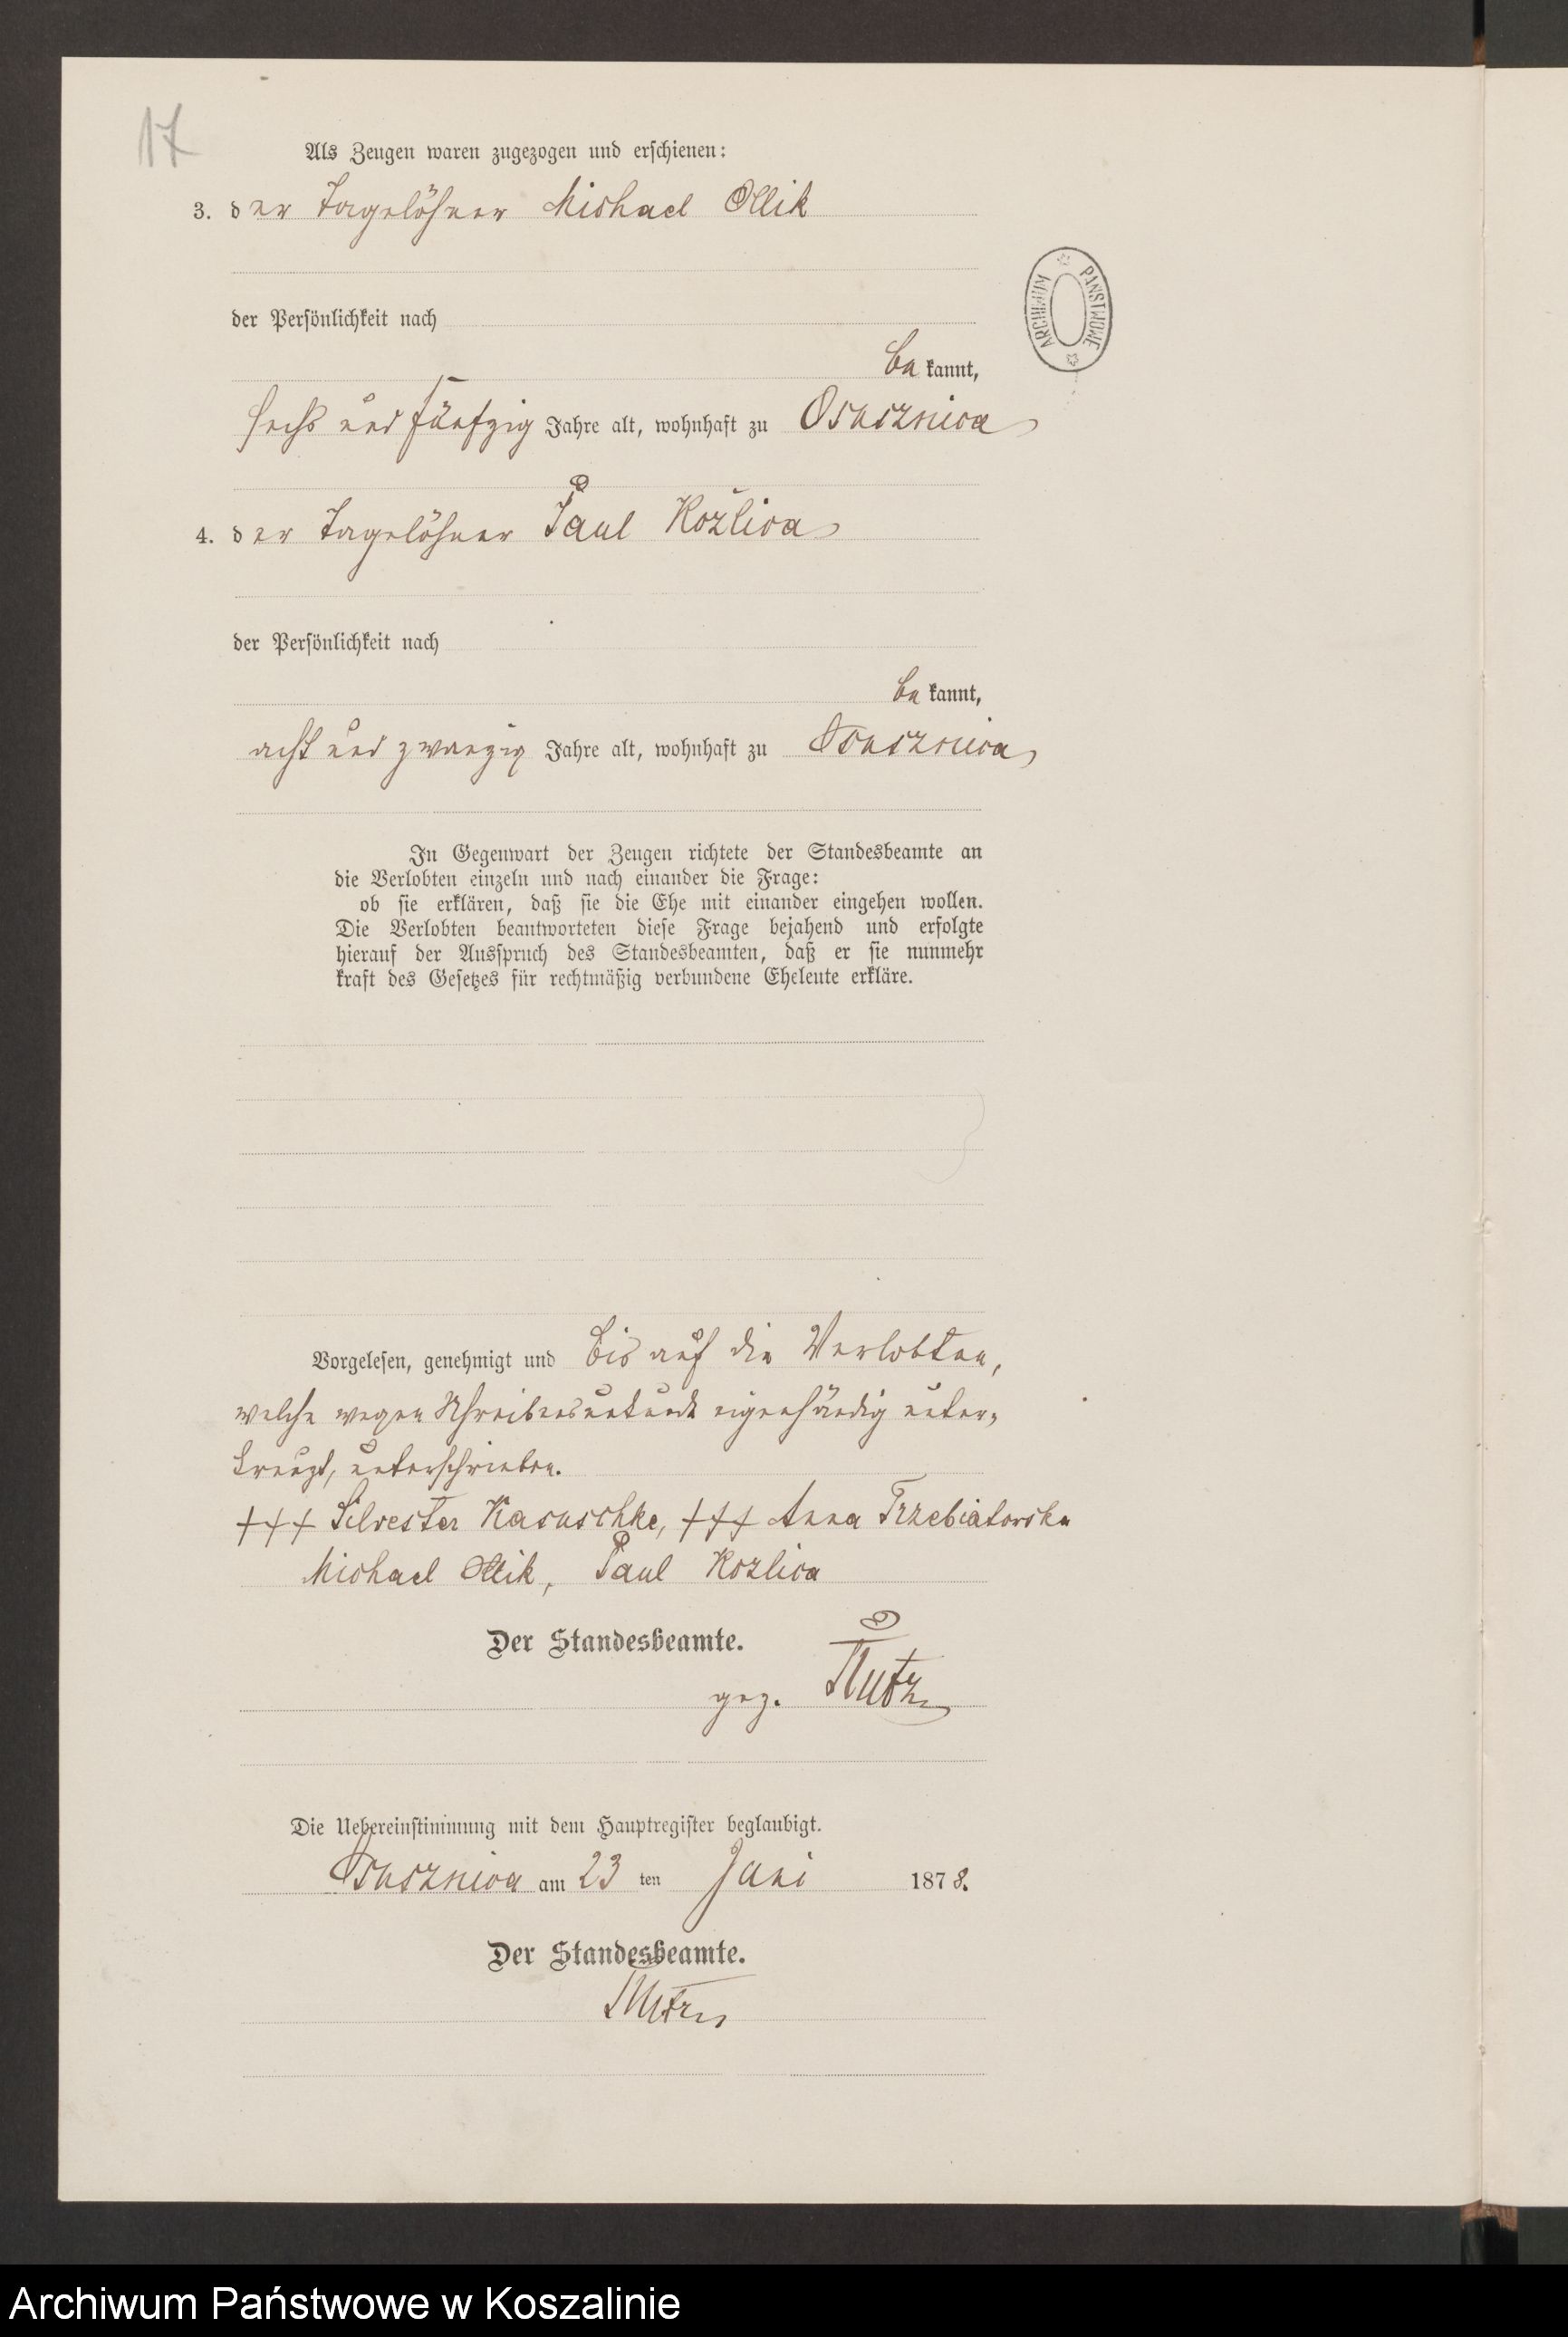 17
Als Zeugen waren zugezogen und erschienen:
3. der Tagelöhner Michael Ollik
der Persönlichkeit nach
bekannt,
sechs und fünfzig Jahre alt, wohnhaft zu Osusznica
4. der Tagelöhner Paul Kozlica
der Persönlichkeit nach
bekannt,
acht und zwanzig Jahre alt, wohnhaft zu Osusznica
In Gegenwart der Zeugen richtete der Standesbeamte an
die Verlobten einzeln und nach einander die Frage:
ob sie erklären, daß sie die Ehe mit einander eingehen wollen.
Die Verlobten beantworteten diese Frage bejahend und erfolgte
hierauf der Ausspruch des Standesbeamten, daß er sie nunmehr
kraft des Gesetzes für rechtmäßig verbundene Eheleute erkläre.
Vorgelesen, genehmigt und bis auf die Verlobten,
welche wegen Schreibensunkunde eigenhändig unter-
kreuzt, unterschrieben.
+++ Silvester Kasuschke, +++ Anna Trzebiatowska
Michael Ollik, Paul Kozlica
Der Standesbeamte.
gez.
Die Uebereinstimmung mit dem Hauptregister beglaubigt.
Osusznica am 23 ten Juni 1878.
Der Standesbeamte.
ARCHIWUM PAŃSTWOWE
Archiwum Państwowe w Koszalinie